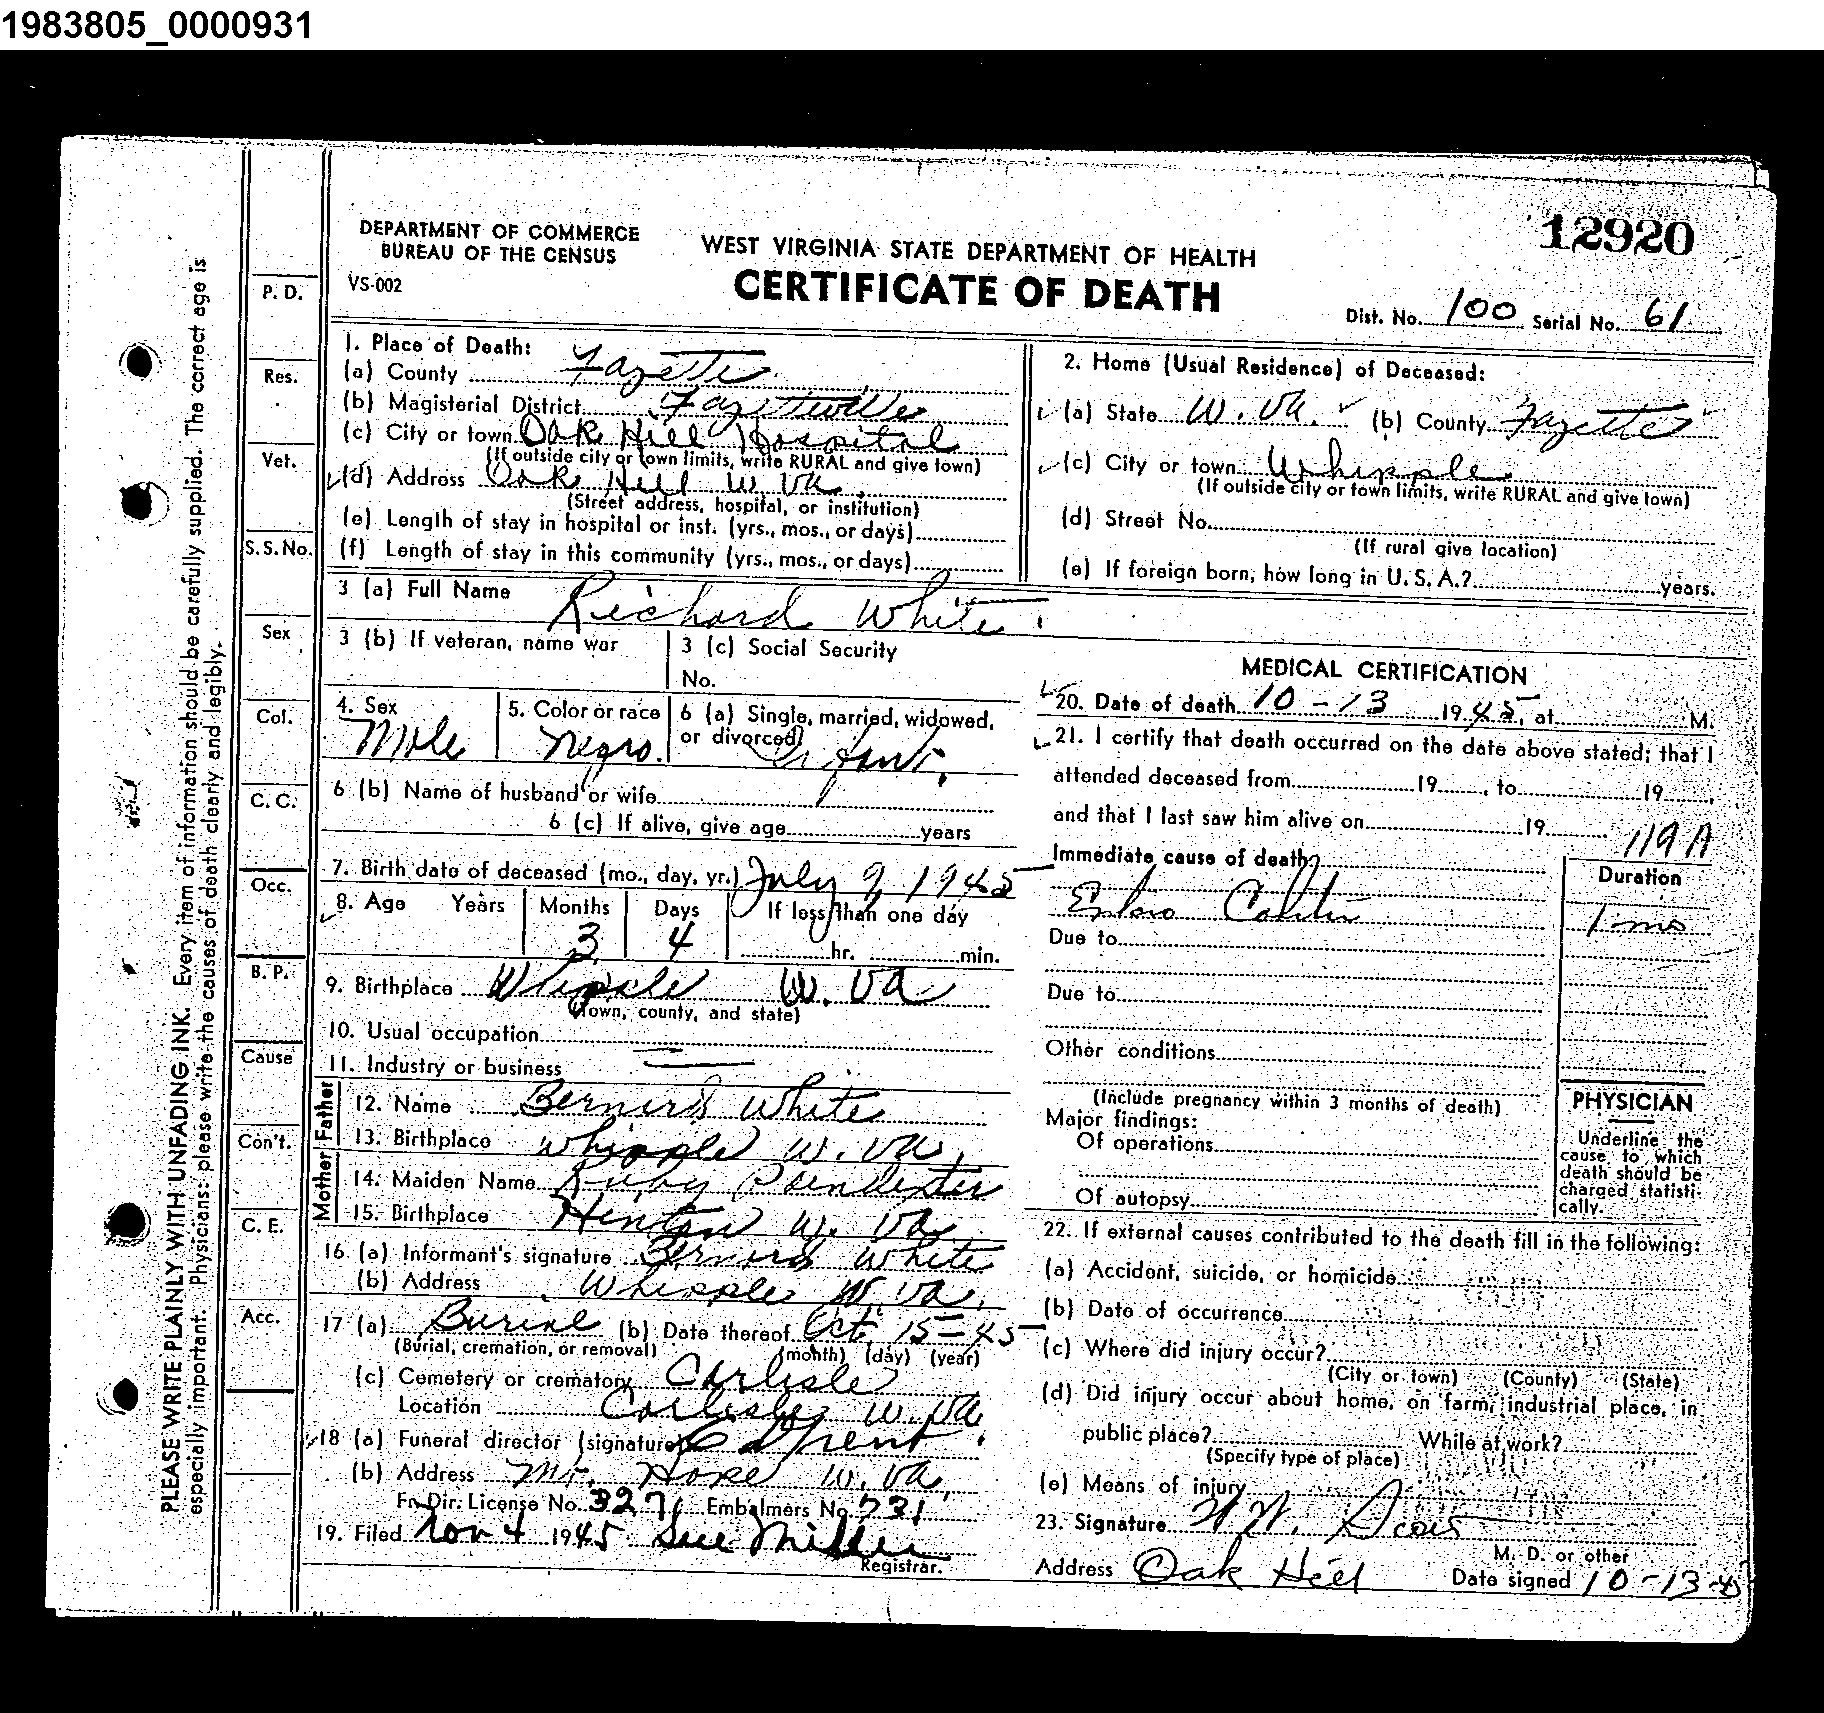 1983805_0000931
12920
DEPARTMENT OF COMMERCE
BUREAU OF THE CENSUS
VS-002
WEST VIRGINIA STATE DEPARTMENT OF HEALTH
CERTIFICATE OF DEATH
Dist. No. 100 Serial No. 61
PLEASE WRITE PLAINLY WITH UNFADING INK. Every item of information should be carefully supplied. The correct age is
especially important. Physicians: please write the causes of death clearly and legibly.
P. D.
Res.
Vet.
S.S.No.
Sex
Col.
C. C.
Occ.
B. P.
Cause
Con't.
C. E.
Acc.
1. Place of Death:
(a) County Fayette
(b) Magisterial District Fayetteville
(c) City or town Oak Hill Hospital
(If outside city or town limits, write RURAL and give town)
(d) Address Oak Hill W Va.
(Street address, hospital, or institution)
(e) Length of stay in hospital or inst. (yrs., mos., or days)
(f) Length of stay in this community (yrs., mos., or days)
2. Home (Usual Residence) of Deceased:
(a) State W. Va. (b) County Fayette
(c) City or town Whipple
(If outside city or town limits, write RURAL and give town)
(d) Street No.
(If rural give location)
(e) If foreign born, how long in U. S. A.? years.
3 (a) Full Name Richard White.
3 (b) If veteran, name war
3 (c) Social Security
No.
4. Sex
Male
5. Color or race
Negro.
6 (a) Single, married, widowed,
or divorced Infant.
6 (b) Name of husband or wife
6 (c) If alive, give age years
7. Birth date of deceased (mo., day, yr.) July 9, 1945
8. Age Years Months Days If less than one day
3 4 hr. min.
9. Birthplace Whipple W. Va
(Town, county, and state)
10. Usual occupation
11. Industry or business
Father
12. Name Bernard White
13. Birthplace Whipple W. Va.
Mother
14. Maiden Name Ruby Poindexter
15. Birthplace Hinton W. Va
16 (a) Informant's signature Bernard White
(b) Address Whipple W. Va.
17 (a) Burial (b) Date thereof Oct. 15-45
(Burial, cremation, or removal) (month) (day) (year)
(c) Cemetery or crematory Carlisle
Location Carlisle W. Va.
18 (a) Funeral director (signature)
(b) Address Mt. Hope W. Va.
Fn. Dir. License No. 3271 Embalmers No. 731
19. Filed Nov 4 1945 Sue Miller
Registrar.
MEDICAL CERTIFICATION
20. Date of death 10-13 1945, at M.
21. I certify that death occurred on the date above stated; that I
attended deceased from 19 , to 19 ,
and that I last saw him alive on 19
119A
Immediate cause of death
Duration
Entero Colitis 1 mo
Due to
Due to
Other conditions
(Include pregnancy within 3 months of death)
Major findings:
Of operations
Of autopsy
PHYSICIAN
Underline the
cause to which
death should be
charged statisti-
cally.
22. If external causes contributed to the death fill in the following:
(a) Accident, suicide, or homicide
(b) Date of occurrence
(c) Where did injury occur?
(City or town) (County) (State)
(d) Did injury occur about home, on farm, industrial place, in
public place? While at work?
(Specify type of place)
(e) Means of injury
23. Signature
M. D. or other
Address Oak Hill Date signed 10-13-45